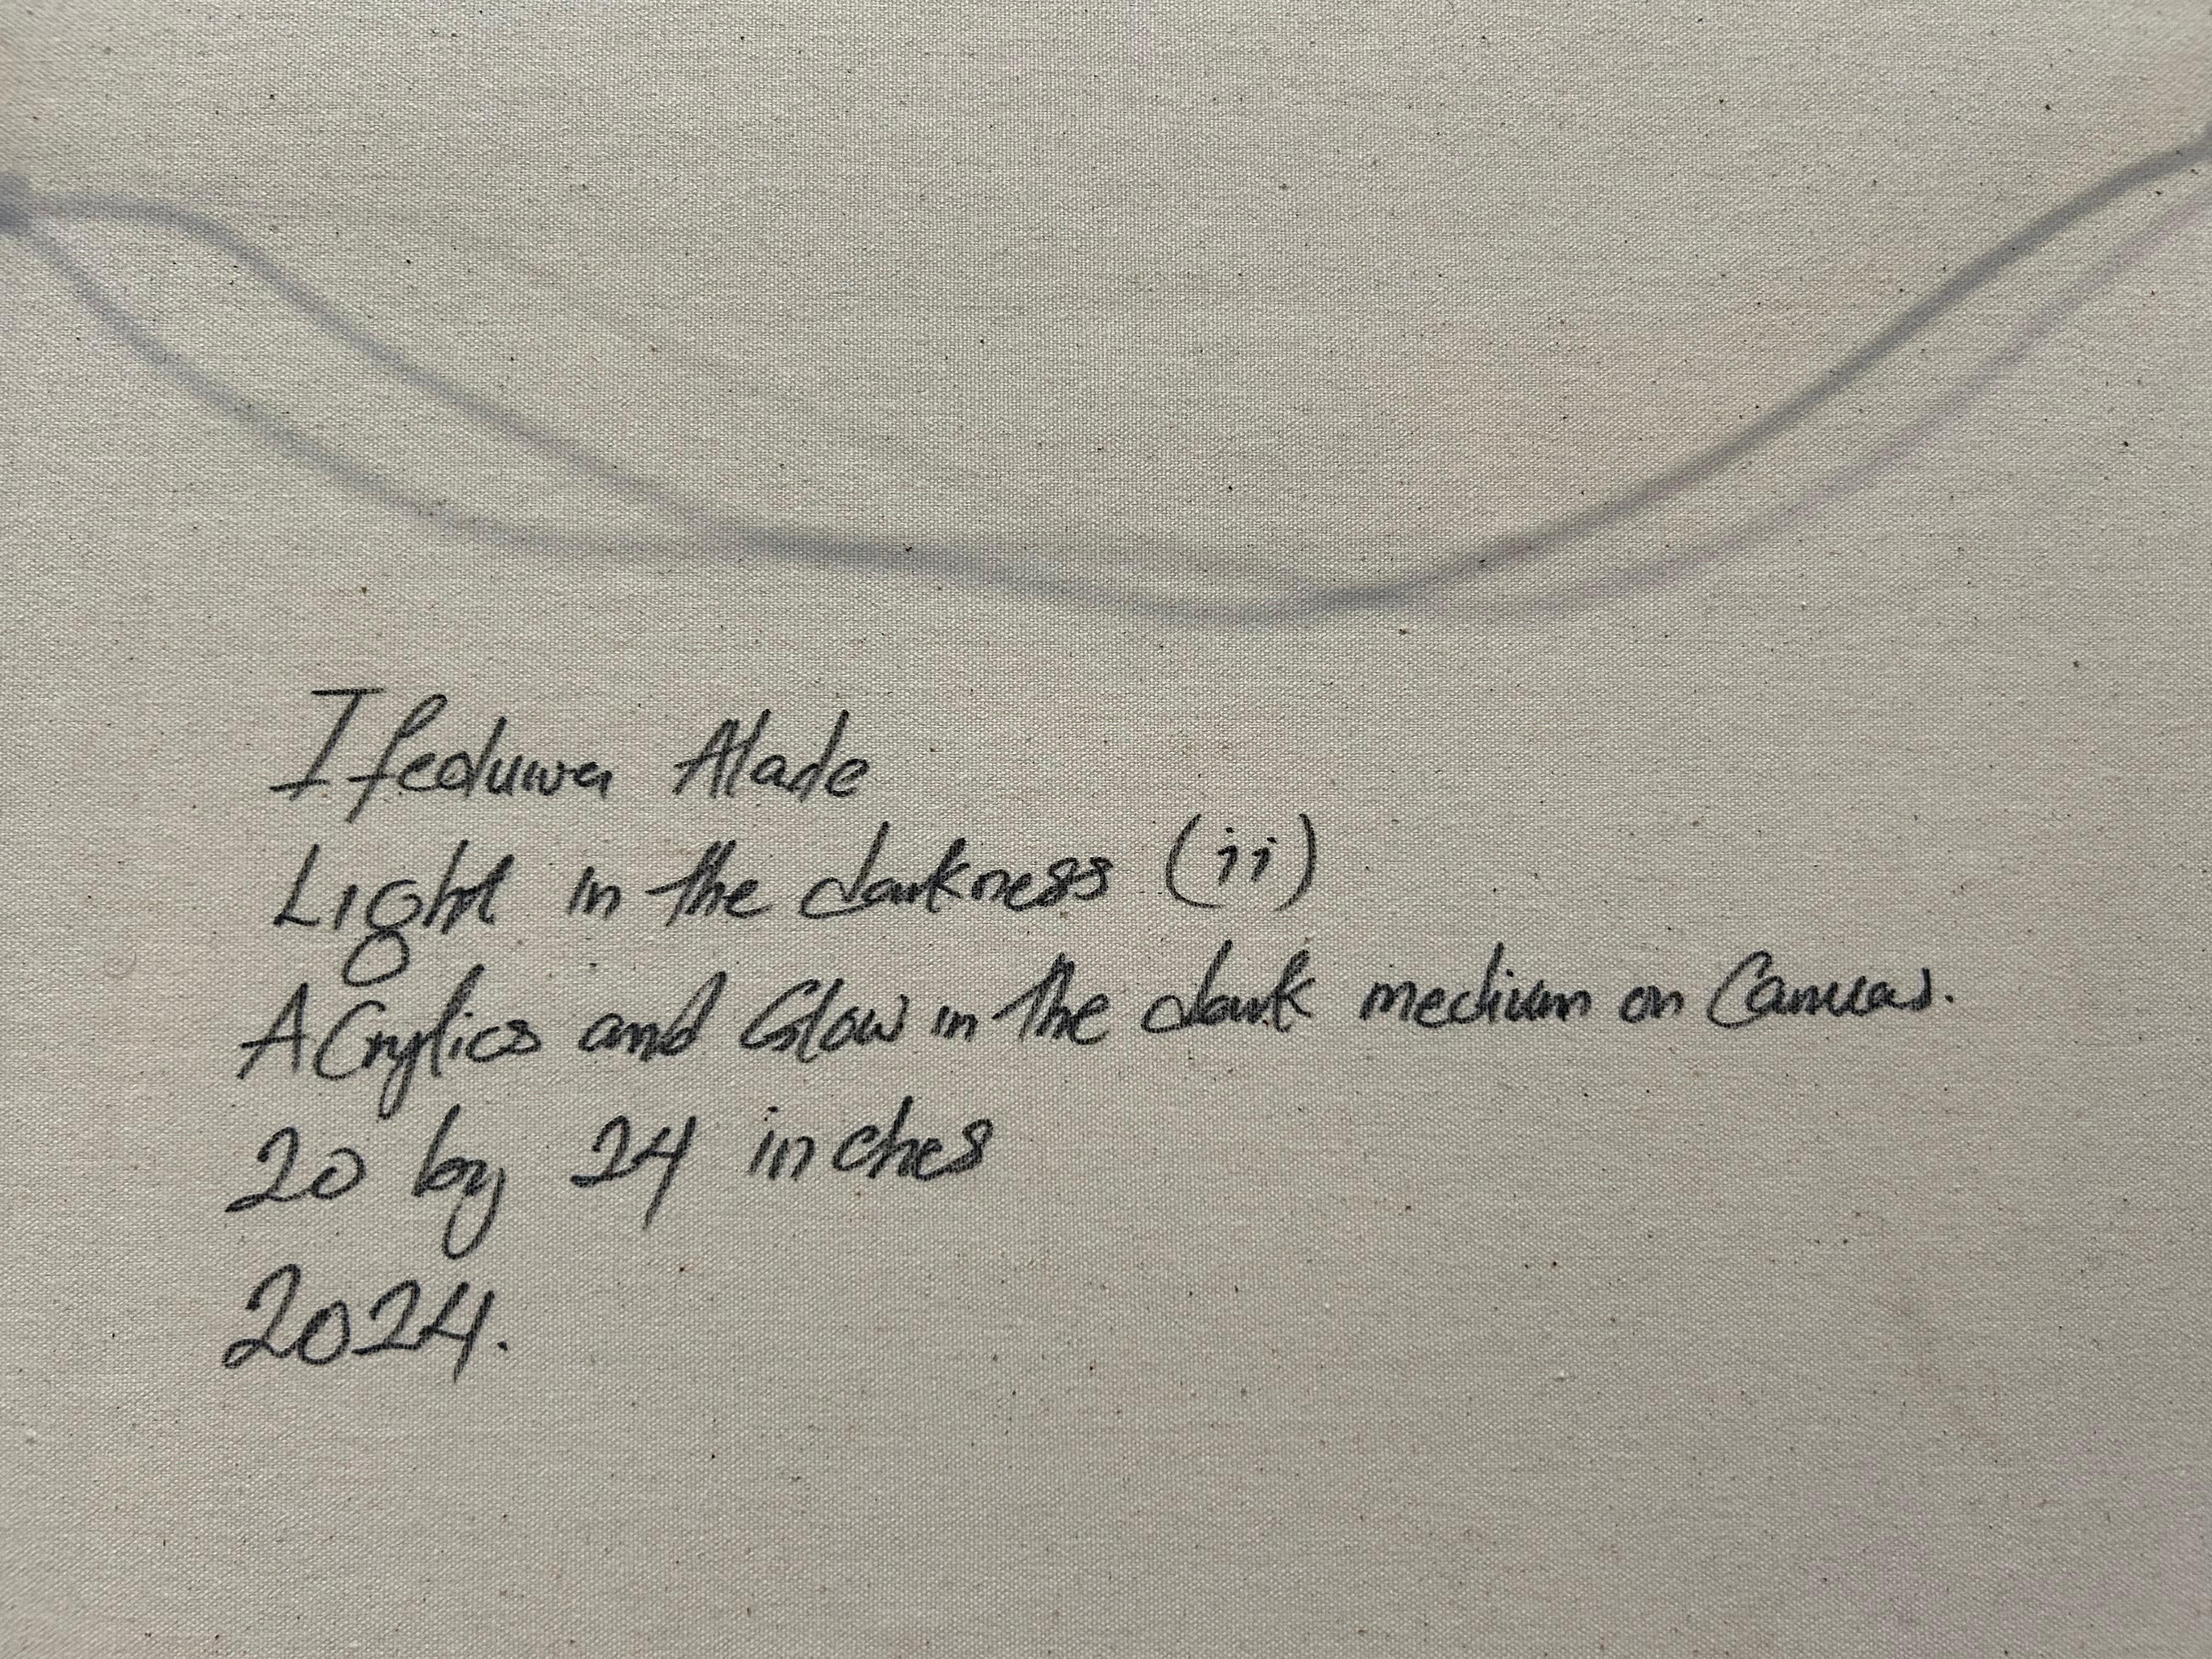 Ifeduwa Alade
Light in the darkness (ii)
ACrylics and Glow in the dark medium on Canvas.
20 by 24 inches
2024.